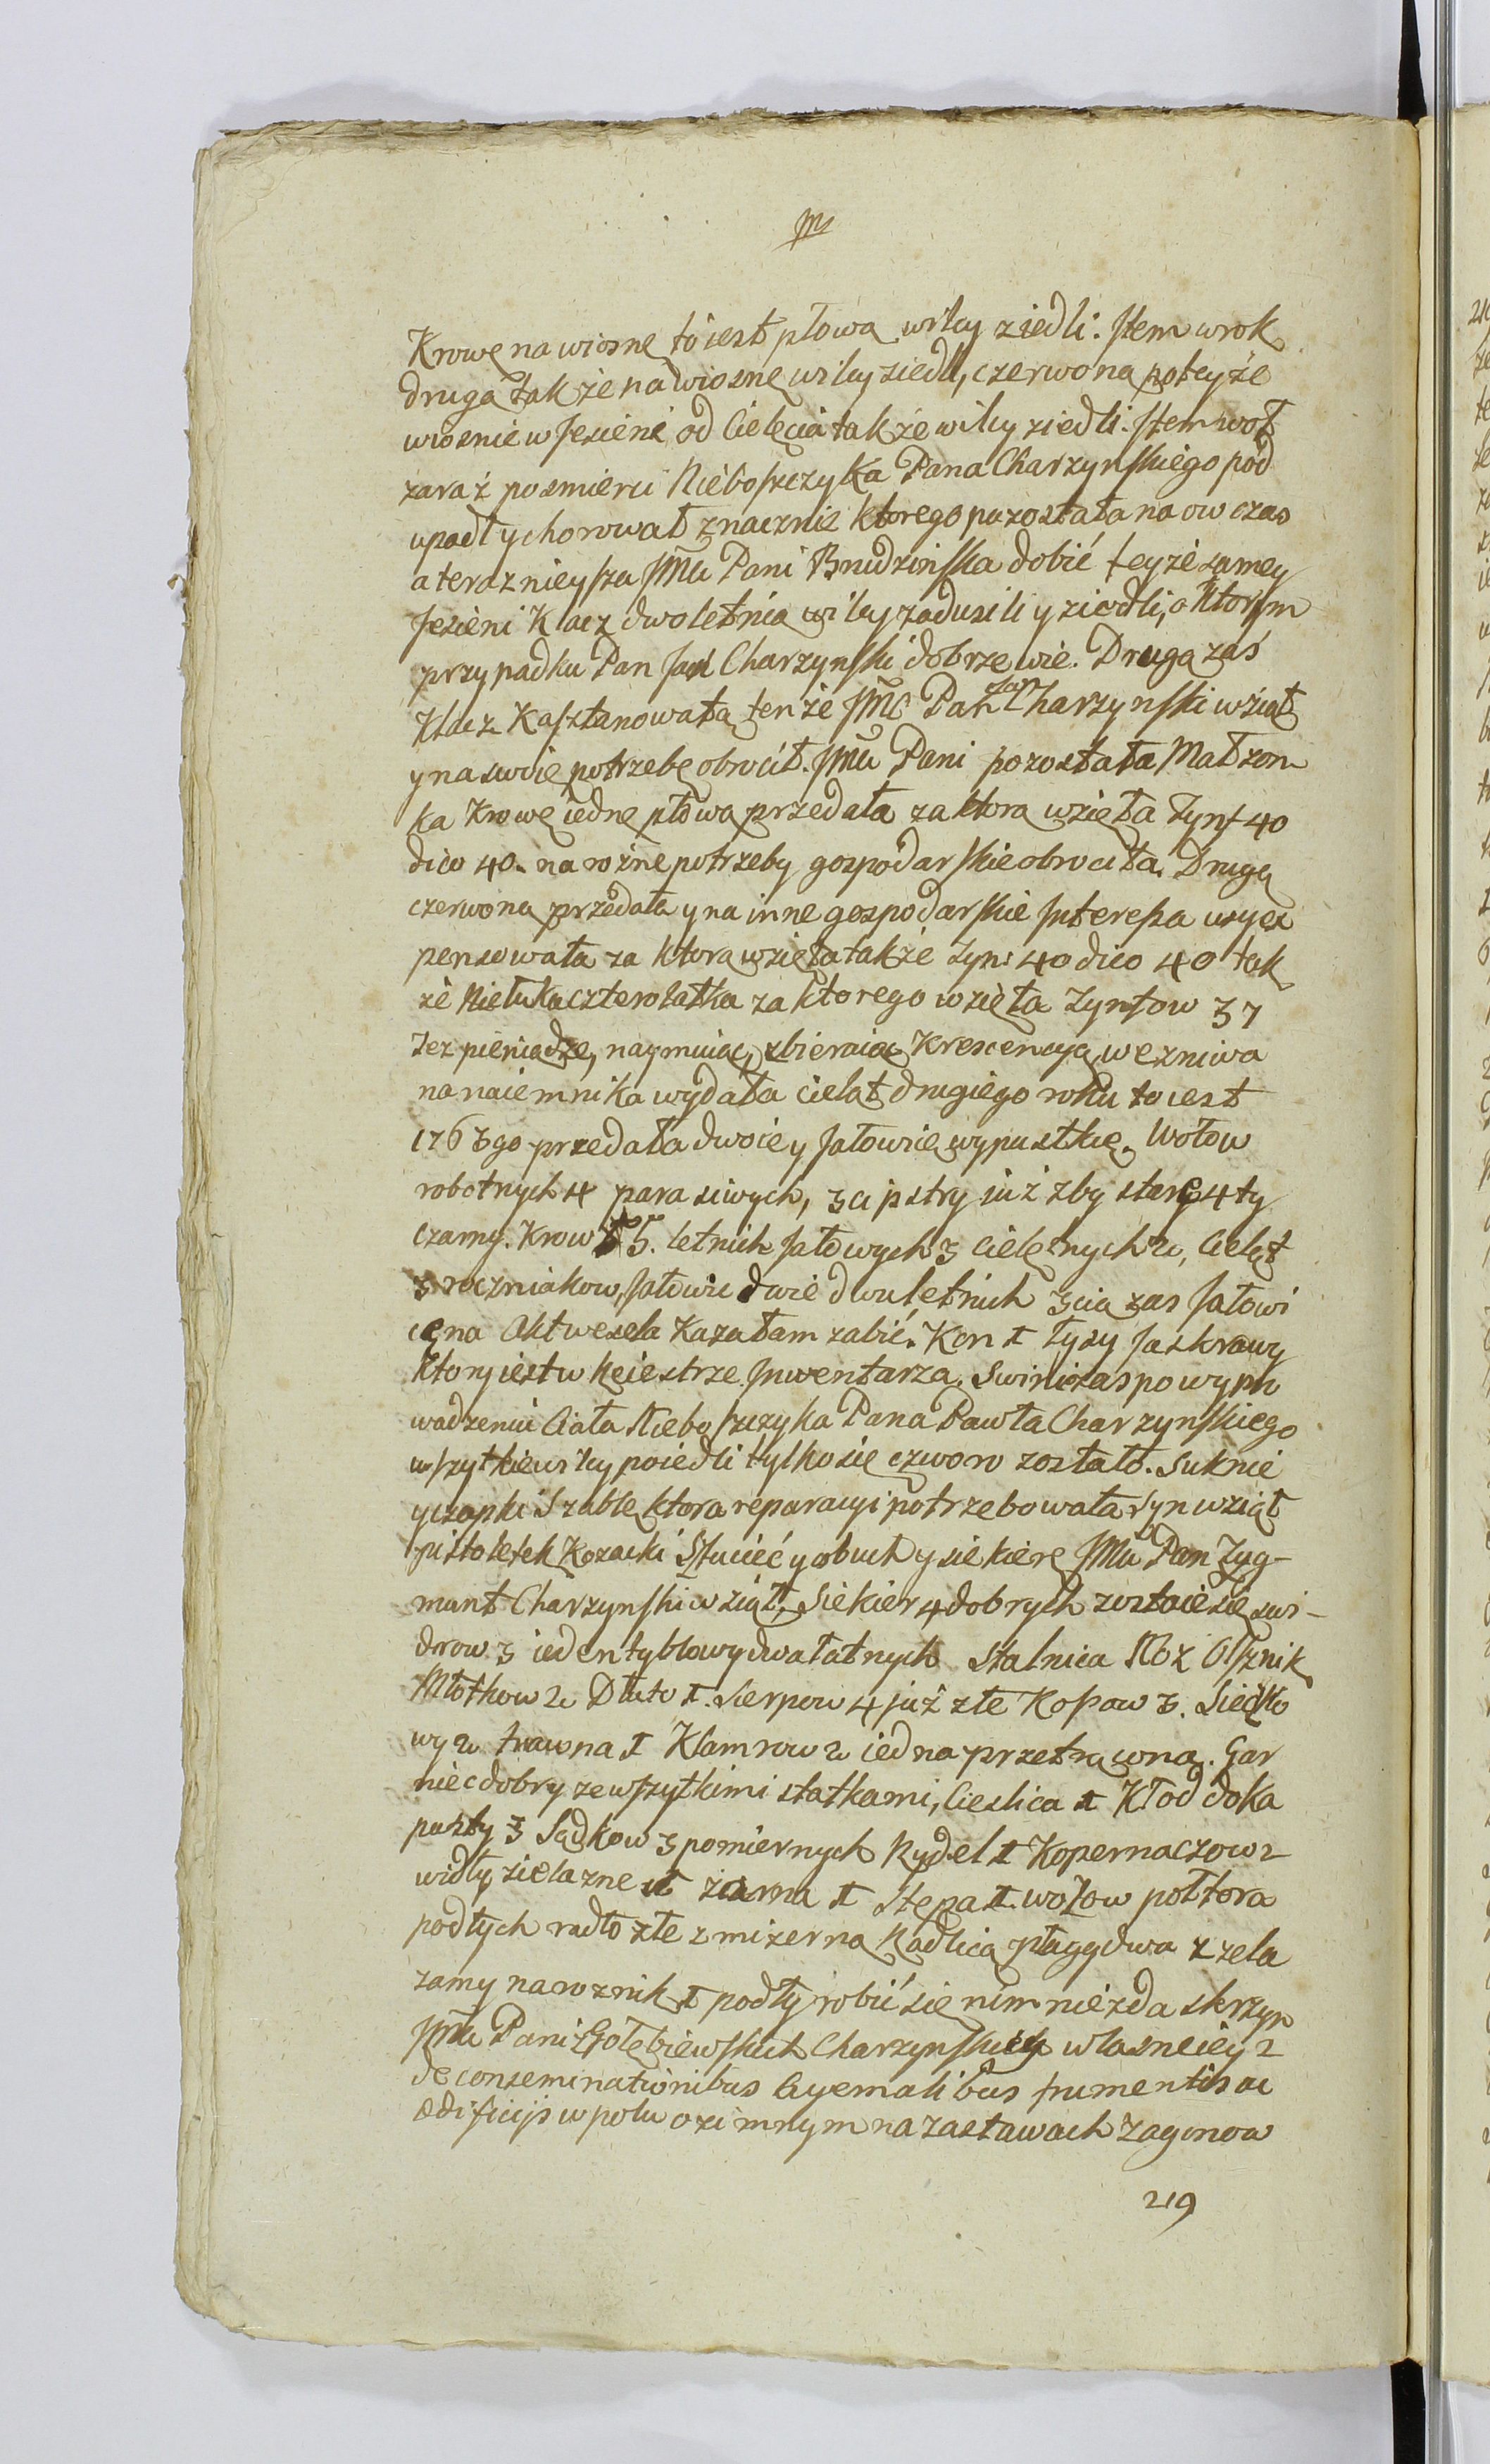 Krowę na wiosnę to iest płową wilcy ziedli. Item w rok
drugą także na wiosnę wilcy ziedli, czerwoną po teyże
wiosnie w Jesieni od Cielęcia także wilcy ziedli. Item woł
zaraz po smierci Nieboszczyka Pana Charzynskiego pod
upadł y chorował znacznie ktorego pozostała na ow czas
a teraznieysza JMci Pani Brudzinska dobić teyże samey
Jesieni Klacz dwoletnią wilcy zadusili y ziedli, o ktorym
przypadku Pan Jan Charzynski dobrze wie. Drugą zaś
Klacz Kasztanowatą tenże JMC Pan Jan Charzynski wziął
y na swoię potrzebę obrocił. JMci Pani pozostała Małżon
ka Krowę iednę płową przedała za ktorą wzięła Tynf 40
dico 40. na rożne potrzeby gospodarskie obrociła. Drugą
czerwoną przedała y na inne gospodarskie Interessa wyex
pensowała za ktorą wzięła także Tyn: 40 dico 40 tak
że Nietuka czterolatka za ktorego wzieła Tynfow 37
Też pieniądze, naymuiąc, zbieraiąc Krescencyą we żniwa
na naiemnika wydała cieląt drugiego roku to iest
1763go przedała dwoie y Jałowicę wypustkę. Wołow
robotnych 4 para siwych, 3ci pstry już zby stary 4ty
Czarny. Krow 5. letnich Jałowych 3 Cielętnych 2, Cieląt
3 roczniakow, Jałowic dwie dwuletnich 3cią zas Jałowi
cę na Akt wesela Kazałam zabić. Kon 1 Łysy Jaskrawy
Ktory iest w Reiestrze Inwentarza. Swinie zas po wypro
wadzeniu Ciała Nieboszczyka Pana Pawła Charzynskiego
wszytkie wilcy poiedli tylko się czworo zostało. Suknie
y czapki Szablę ktora reparacyi potrzebowała Syn wziął
pistoletek Kozacki Sztuciec y obuch y siekierę JMci Pan Zyg-
munt Charzynski wziął, Siekier 4 dobrych zostaie się swi-
drow 3 ieden tyblowy dwa łatnych Stalnica Noż Osznik
Młotkow 2 Dłuto 1. Sierpow 4 już złe Kosow 3. Sieczko
wy 2 trawna 1 Klamrow 2 iedna przetrącona. Gar
niec dobry ze wszytkimi statkami, Cieslica 1 Kłod do ka
pusty 3 Sądkow 3 pomiernych Rydel 1 Kopernaczow 2
widły zielazne 1 żarna 1 Stępa 1. wozow połtora
podłych radło złe z mizerną Radlicą pługy dwa z zela
zamy narożnik 1 podły robić się nim nie zda skrzyn
JMci Pani Gołębiewskich Charzynskiey własneiey 2
De conseminationibus hyemalibus frumentis ac
Ædificijs w polu ozimnym na zastawach zagonow
219